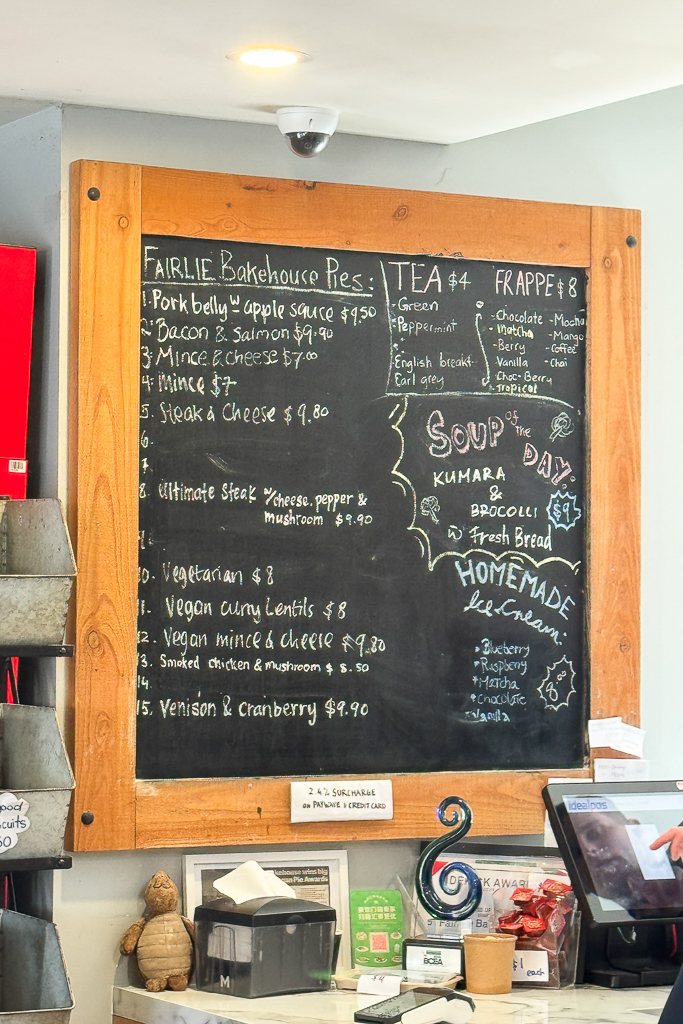 FAIRLIE Bakehouse Pies:
1. Pork belly w apple sauce $9.50
2. Bacon & Salmon $9.90
3. Mince & cheese $7.00
4. Mince $7
5. Steak & Cheese $9.80
6.
7.
8. Ultimate steak w/cheese, pepper &
mushroom $9.90
9.
10. Vegetarian $8
11. Vegan curry Lentils $8
12. Vegan mince & cheese $9.80
13. Smoked chicken & mushroom $8.50
14.
15. Venison & cranberry $9.90
TEA $4
-Green
-Peppermint
-English breakf.
Earl grey
FRAPPE $8
-Chocolate
-Matcha
-Berry
Vanilla
Choc-Berry
Tropical
-Mocha
-Mango
-Coffee
-Chai
SOUP of the DAY.
KUMARA
&
BROCOLLI
$9
w Fresh Bread
HOMEMADE
Ice Cream:
Blueberry
Raspberry
Matcha
Chocolate
Vanilla
2.4% SURCHARGE
ON PAYWAVE & CREDIT CARD
idealpos
$1
each
BCEA
$4
M